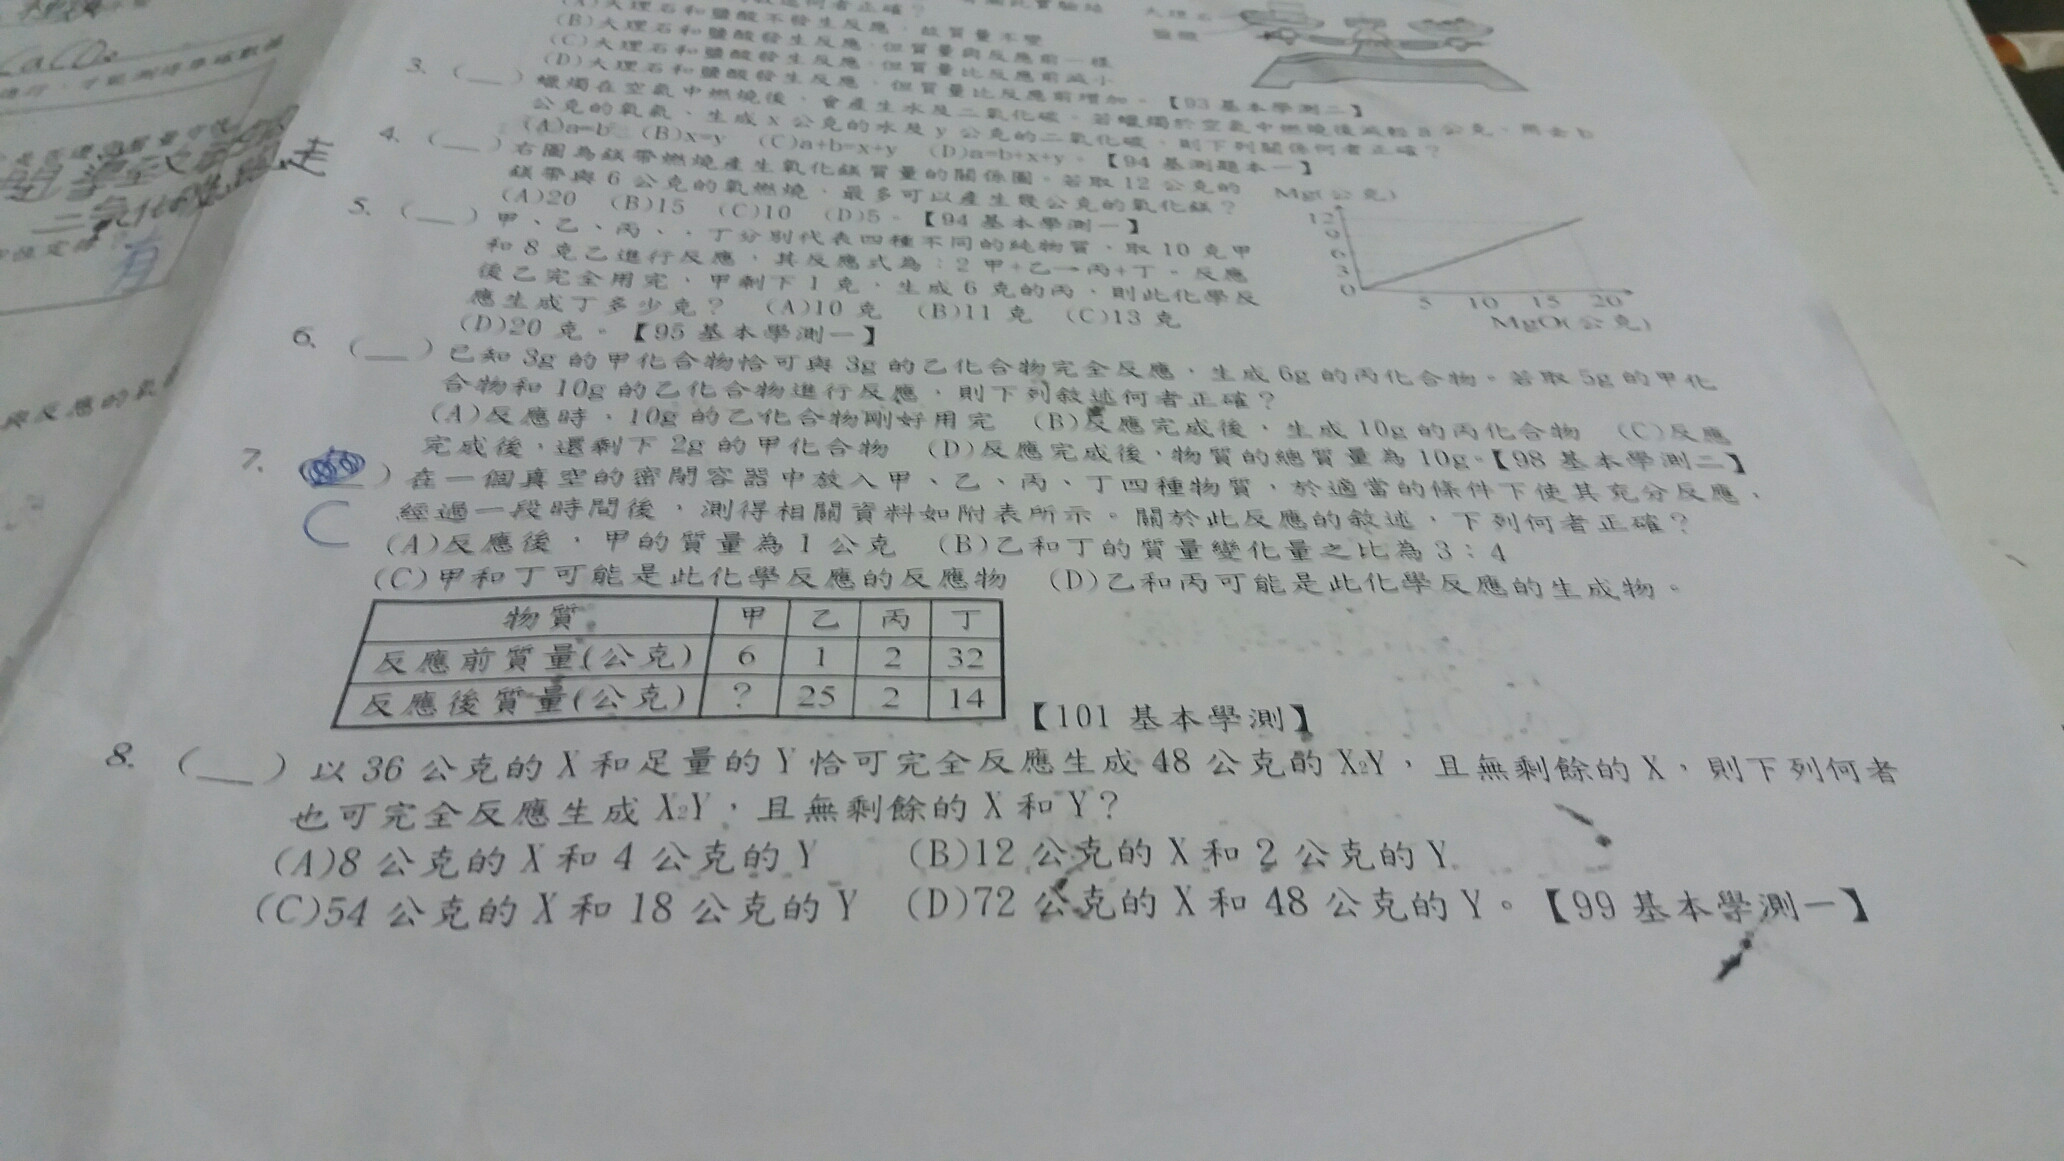 CaCO₃
(B)大理石和鹽酸不發生反應,故質量不變
(C)大理石和鹽酸發生反應,但質量與反應前一樣
(D)大理石和鹽酸發生反應,但質量比反應前減小
但質量比反應前增加。【93基本學測二】
3. (__)蠟燭在空氣中燃燒後,會產生水及二氧化碳,若蠟燭於空氣中燃燒後減輕a公克,用去b
公克的氧氣,生成x公克的水及y公克的二氧化碳,則下列關係何者正確?
(A)a=b (B)x=y (C)a+b=x+y (D)a=b+x+y。【94基測題本一】
4. (__)右圖為鎂帶燃燒產生氧化鎂質量的關係圖。若取12公克的
鎂帶與6公克的氧燃燒,最多可以產生幾公克的氧化鎂?
(A)20 (B)15 (C)10 (D)5。【94基本學測一】
Mg(公克)
12
9
6
3
0
5 10 15 20
MgO(公克)
5. (__)甲、乙、丙、、丁分別代表四種不同的純物質,取10克甲
和8克乙進行反應,其反應式為:2甲+乙→丙+丁。反應
後乙完全用完,甲剩下1克,生成6克的丙,則此化學反
應生成丁多少克? (A)10克 (B)11克 (C)13克
(D)20克。【95基本學測一】
6. (__)已知3g的甲化合物恰可與3g的乙化合物完全反應,生成6g的丙化合物。若取5g的甲化
合物和10g的乙化合物進行反應,則下列敘述何者正確?
(A)反應時,10g的乙化合物剛好用完 (B)反應完成後,生成10g的丙化合物 (C)反應
完成後,還剩下2g的甲化合物 (D)反應完成後,物質的總質量為10g。【98基本學測二】
7. (__)在一個真空的密閉容器中放入甲、乙、丙、丁四種物質,於適當的條件下使其充分反應,
C
經過一段時間後,測得相關資料如附表所示。關於此反應的敘述,下列何者正確?
(A)反應後,甲的質量為1公克 (B)乙和丁的質量變化量之比為3:4
(C)甲和丁可能是此化學反應的反應物 (D)乙和丙可能是此化學反應的生成物。
物質 甲 乙 丙 丁
反應前質量(公克) 6 1 2 32
反應後質量(公克) ? 25 2 14
【101基本學測】
8. (__)以36公克的X和足量的Y恰可完全反應生成48公克的X₂Y,且無剩餘的X,則下列何者
也可完全反應生成X₂Y,且無剩餘的X和Y?
(A)8公克的X和4公克的Y (B)12公克的X和2公克的Y
(C)54公克的X和18公克的Y (D)72公克的X和48公克的Y。【99基本學測一】